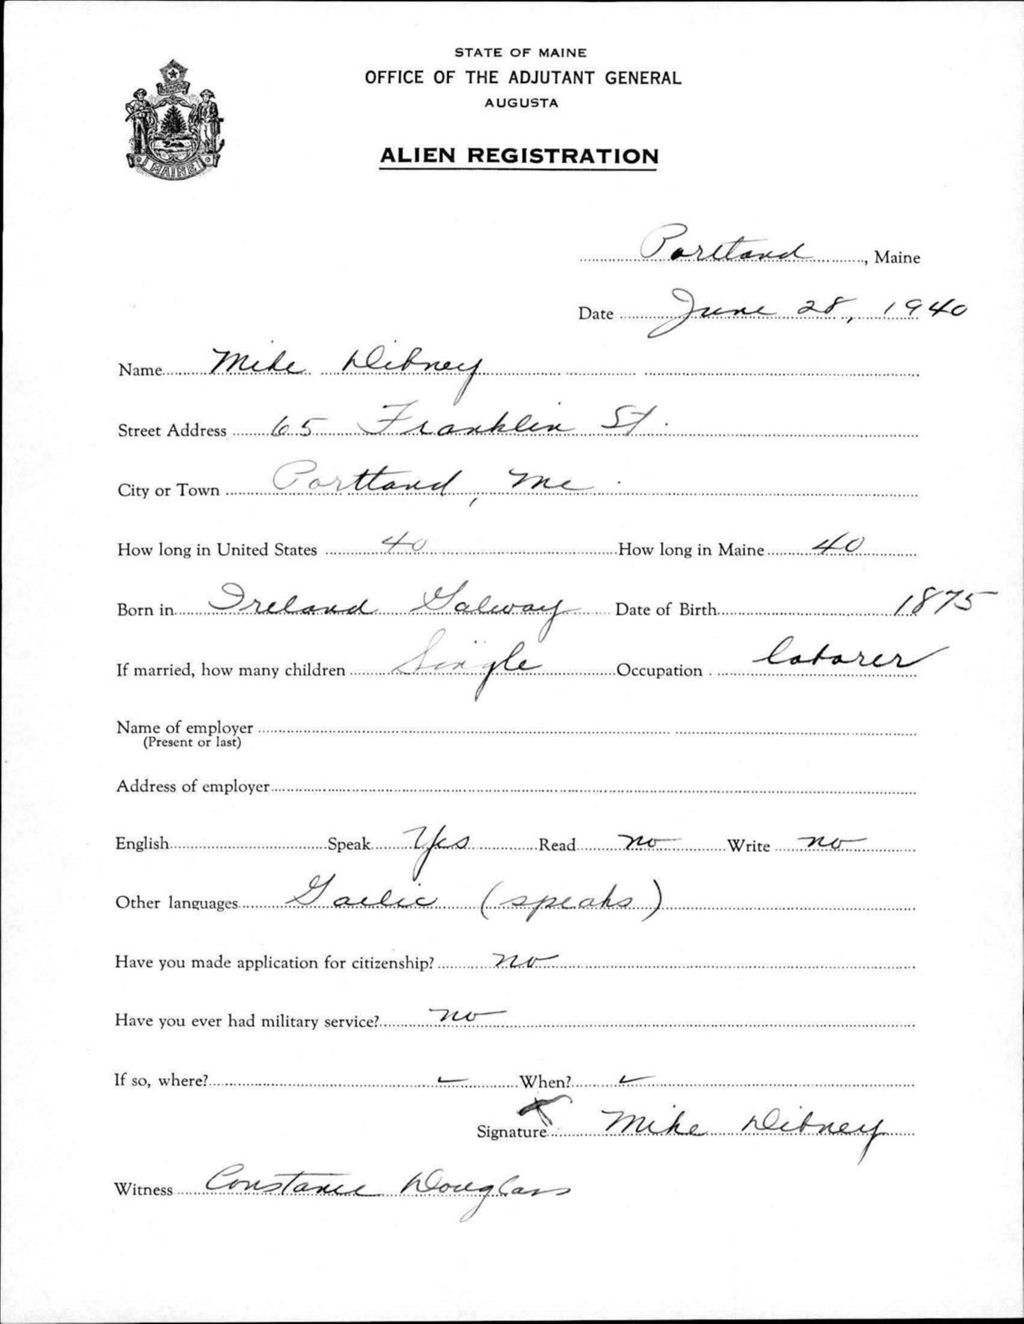 STATE OF MAINE
OFFICE OF THE ADJUTANT GENERAL
AUGUSTA
MAINE
ALIEN REGISTRATION
Portland, Maine
Date June 28, 1940
Name Mike Dibney
Street Address 65 Franklin St.
City or Town Portland, Me.
How long in United States 40 How long in Maine 40
Born in Ireland Galway Date of Birth 1875
If married, how many children Single Occupation laborer
Name of employer
(Present or last)
Address of employer
English Speak Yes Read no Write no
Other languages Gaelic (speaks)
Have you made application for citizenship? no
Have you ever had military service? no
If so, where? When?
Signature X Mike Dibney
Witness Constance Douglass